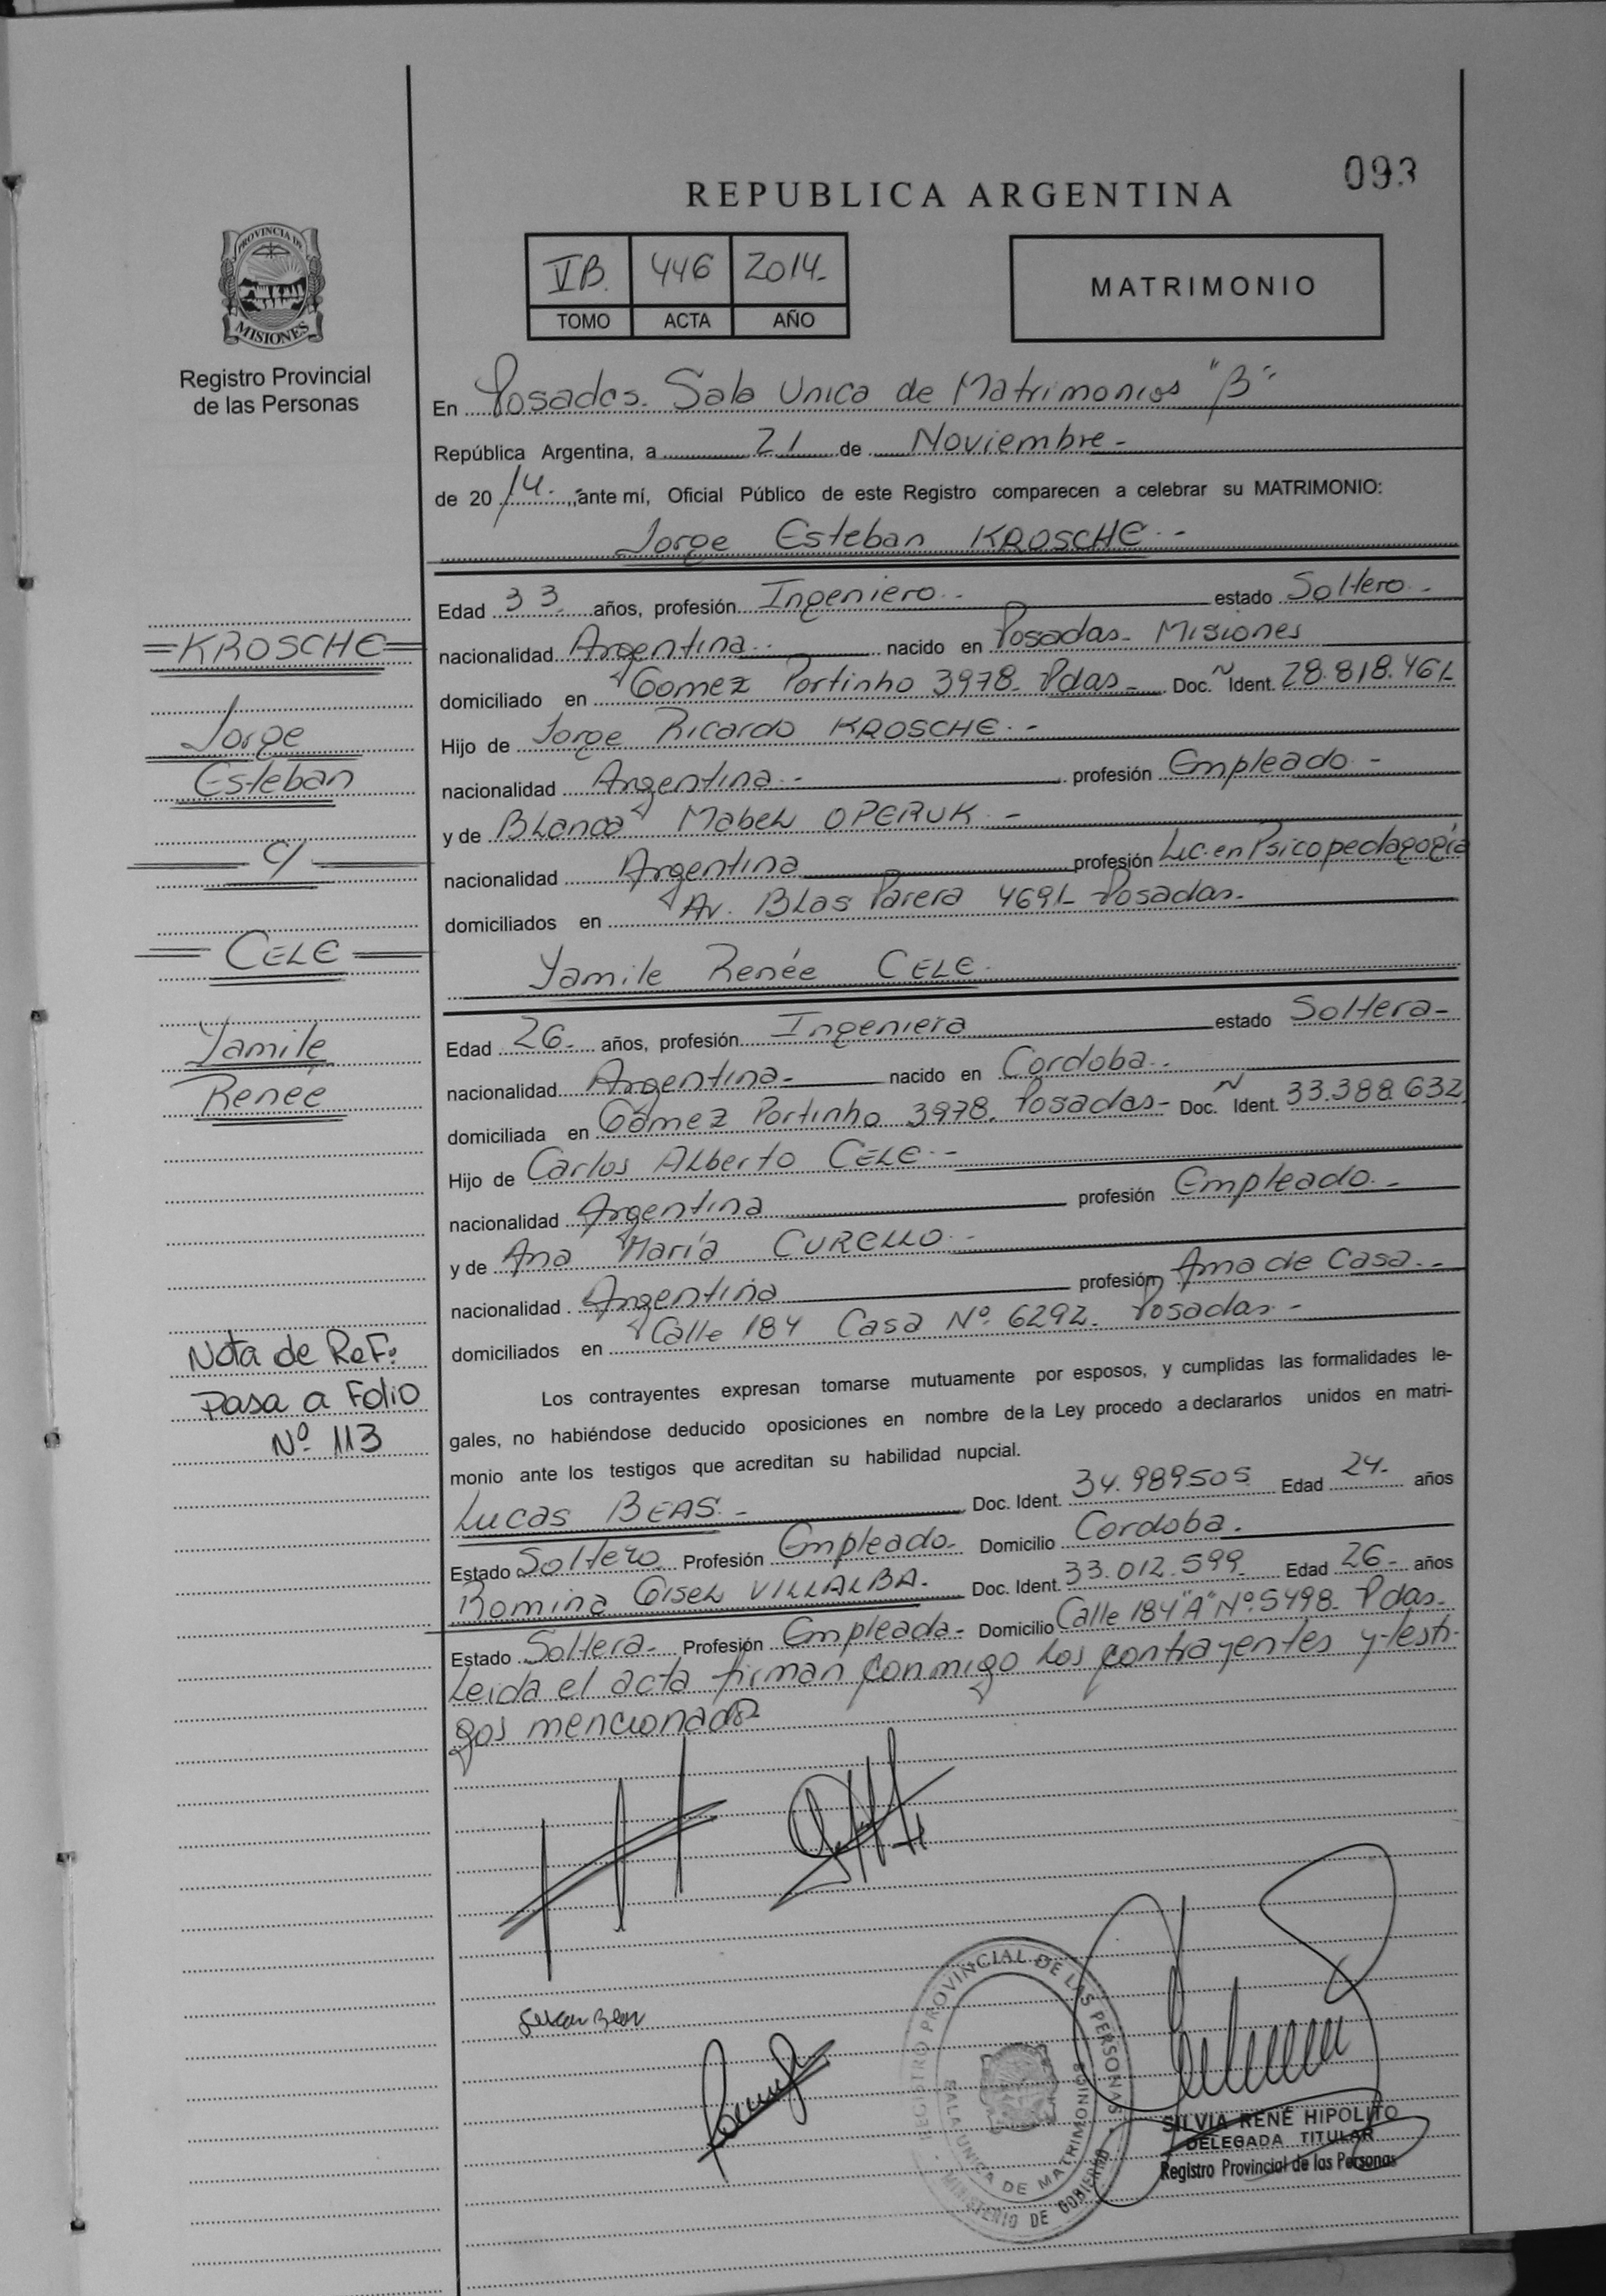 093
REPUBLICA ARGENTINA
PROVINCIA DE
MISIONES
Registro Provincial
de las Personas
VB. 446 2014-
TOMO ACTA AÑO
MATRIMONIO
En Posadas. Sala Unica de Matrimonios "B"
República Argentina, a 21 de Noviembre -
de 20 14. ,ante mí, Oficial Público de este Registro comparecen a celebrar su MATRIMONIO:
Jorge Esteban KROSCHE. -
Edad 33 años, profesión Ingeniero. - estado Soltero. -
nacionalidad Argentina. nacido en Posadas- Misiones
domiciliado en Gomez Portinho 3978- Pdas- Doc. N Ident. 28.818.461-
Hijo de Jorge Ricardo KROSCHE. -
nacionalidad Argentina. - profesión Empleado -
y de Blanca Mabel OPERUK. -
nacionalidad Argentina profesión Lic. en Psicopedagogía
domiciliados en Av. Blas Parera 4691- Posadas-
Yamile Renée CELE.
Edad 26- años, profesión Ingeniera estado Soltera-
nacionalidad Argentina- nacido en Cordoba. -
domiciliada en Gómez Portinho 3978. Posadas- Doc. N Ident. 33.388.632
Hijo de Carlos Alberto CELE. -
nacionalidad Argentina profesión Empleado. -
y de Ana María CURELLO. -
nacionalidad Argentina profesión Ama de Casa. -
domiciliados en Calle 184 Casa Nº 6292- Posadas -
Los contrayentes expresan tomarse mutuamente por esposos, y cumplidas las formalidades le-
gales, no habiéndose deducido oposiciones en nombre de la Ley procedo a declararlos unidos en matri-
monio ante los testigos que acreditan su habilidad nupcial.
Lucas BEAS. - Doc. Ident. 34.989505 Edad 24- años
Estado Soltero Profesión Empleado- Domicilio Cordoba.
Romina Gisel VILLALBA. Doc. Ident. 33.012.599 Edad 26- años
Estado Soltera- Profesión Empleada- Domicilio Calle 184 "A" Nº 5498- Pdas-
Leida el acta firman conmigo los contrayentes y testi-
gos mencionados
=KROSCHE=
Jorge
Esteban
c/
= CELE =
Yamile
Renée
Nota de Ref:
Pasa a Folio
Nº 113
REGISTRO PROVINCIAL DE LAS PERSONAS
SALA UNICA DE MATRIMONIOS
MINISTERIO DE GOBIERNO
SILVIA RENÉ HIPOLITO
DELEGADA TITULAR
Registro Provincial de las Personas